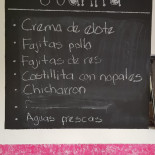 - Crema de elote
- Fajitas pollo
- Fajitas de res
- Costillita con nopales
- Chicharron
- Aguas frescas